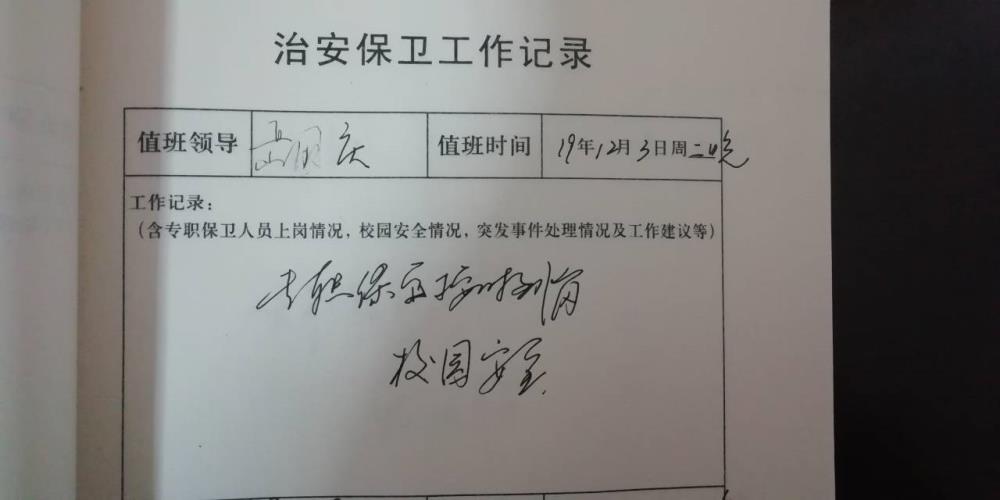 治安保卫工作记录
值班领导 岳国庆 值班时间 19年12月3日周二晚
工作记录:
(含专职保卫人员上岗情况,校园安全情况,突发事件处理情况及工作建议等)
专职保安按时到岗
校园安全.